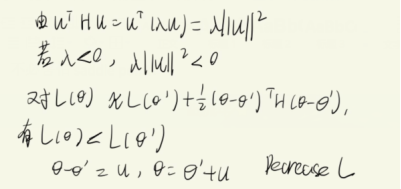 由 uᵀHu = uᵀ(λu) = λ||u||²
若 λ<0, λ||u||² < 0
对 L(θ) ≈ L(θ') + ½(θ-θ')ᵀH(θ-θ'),
有 L(θ) < L(θ')
θ-θ' = u, θ = θ'+u Decrease L